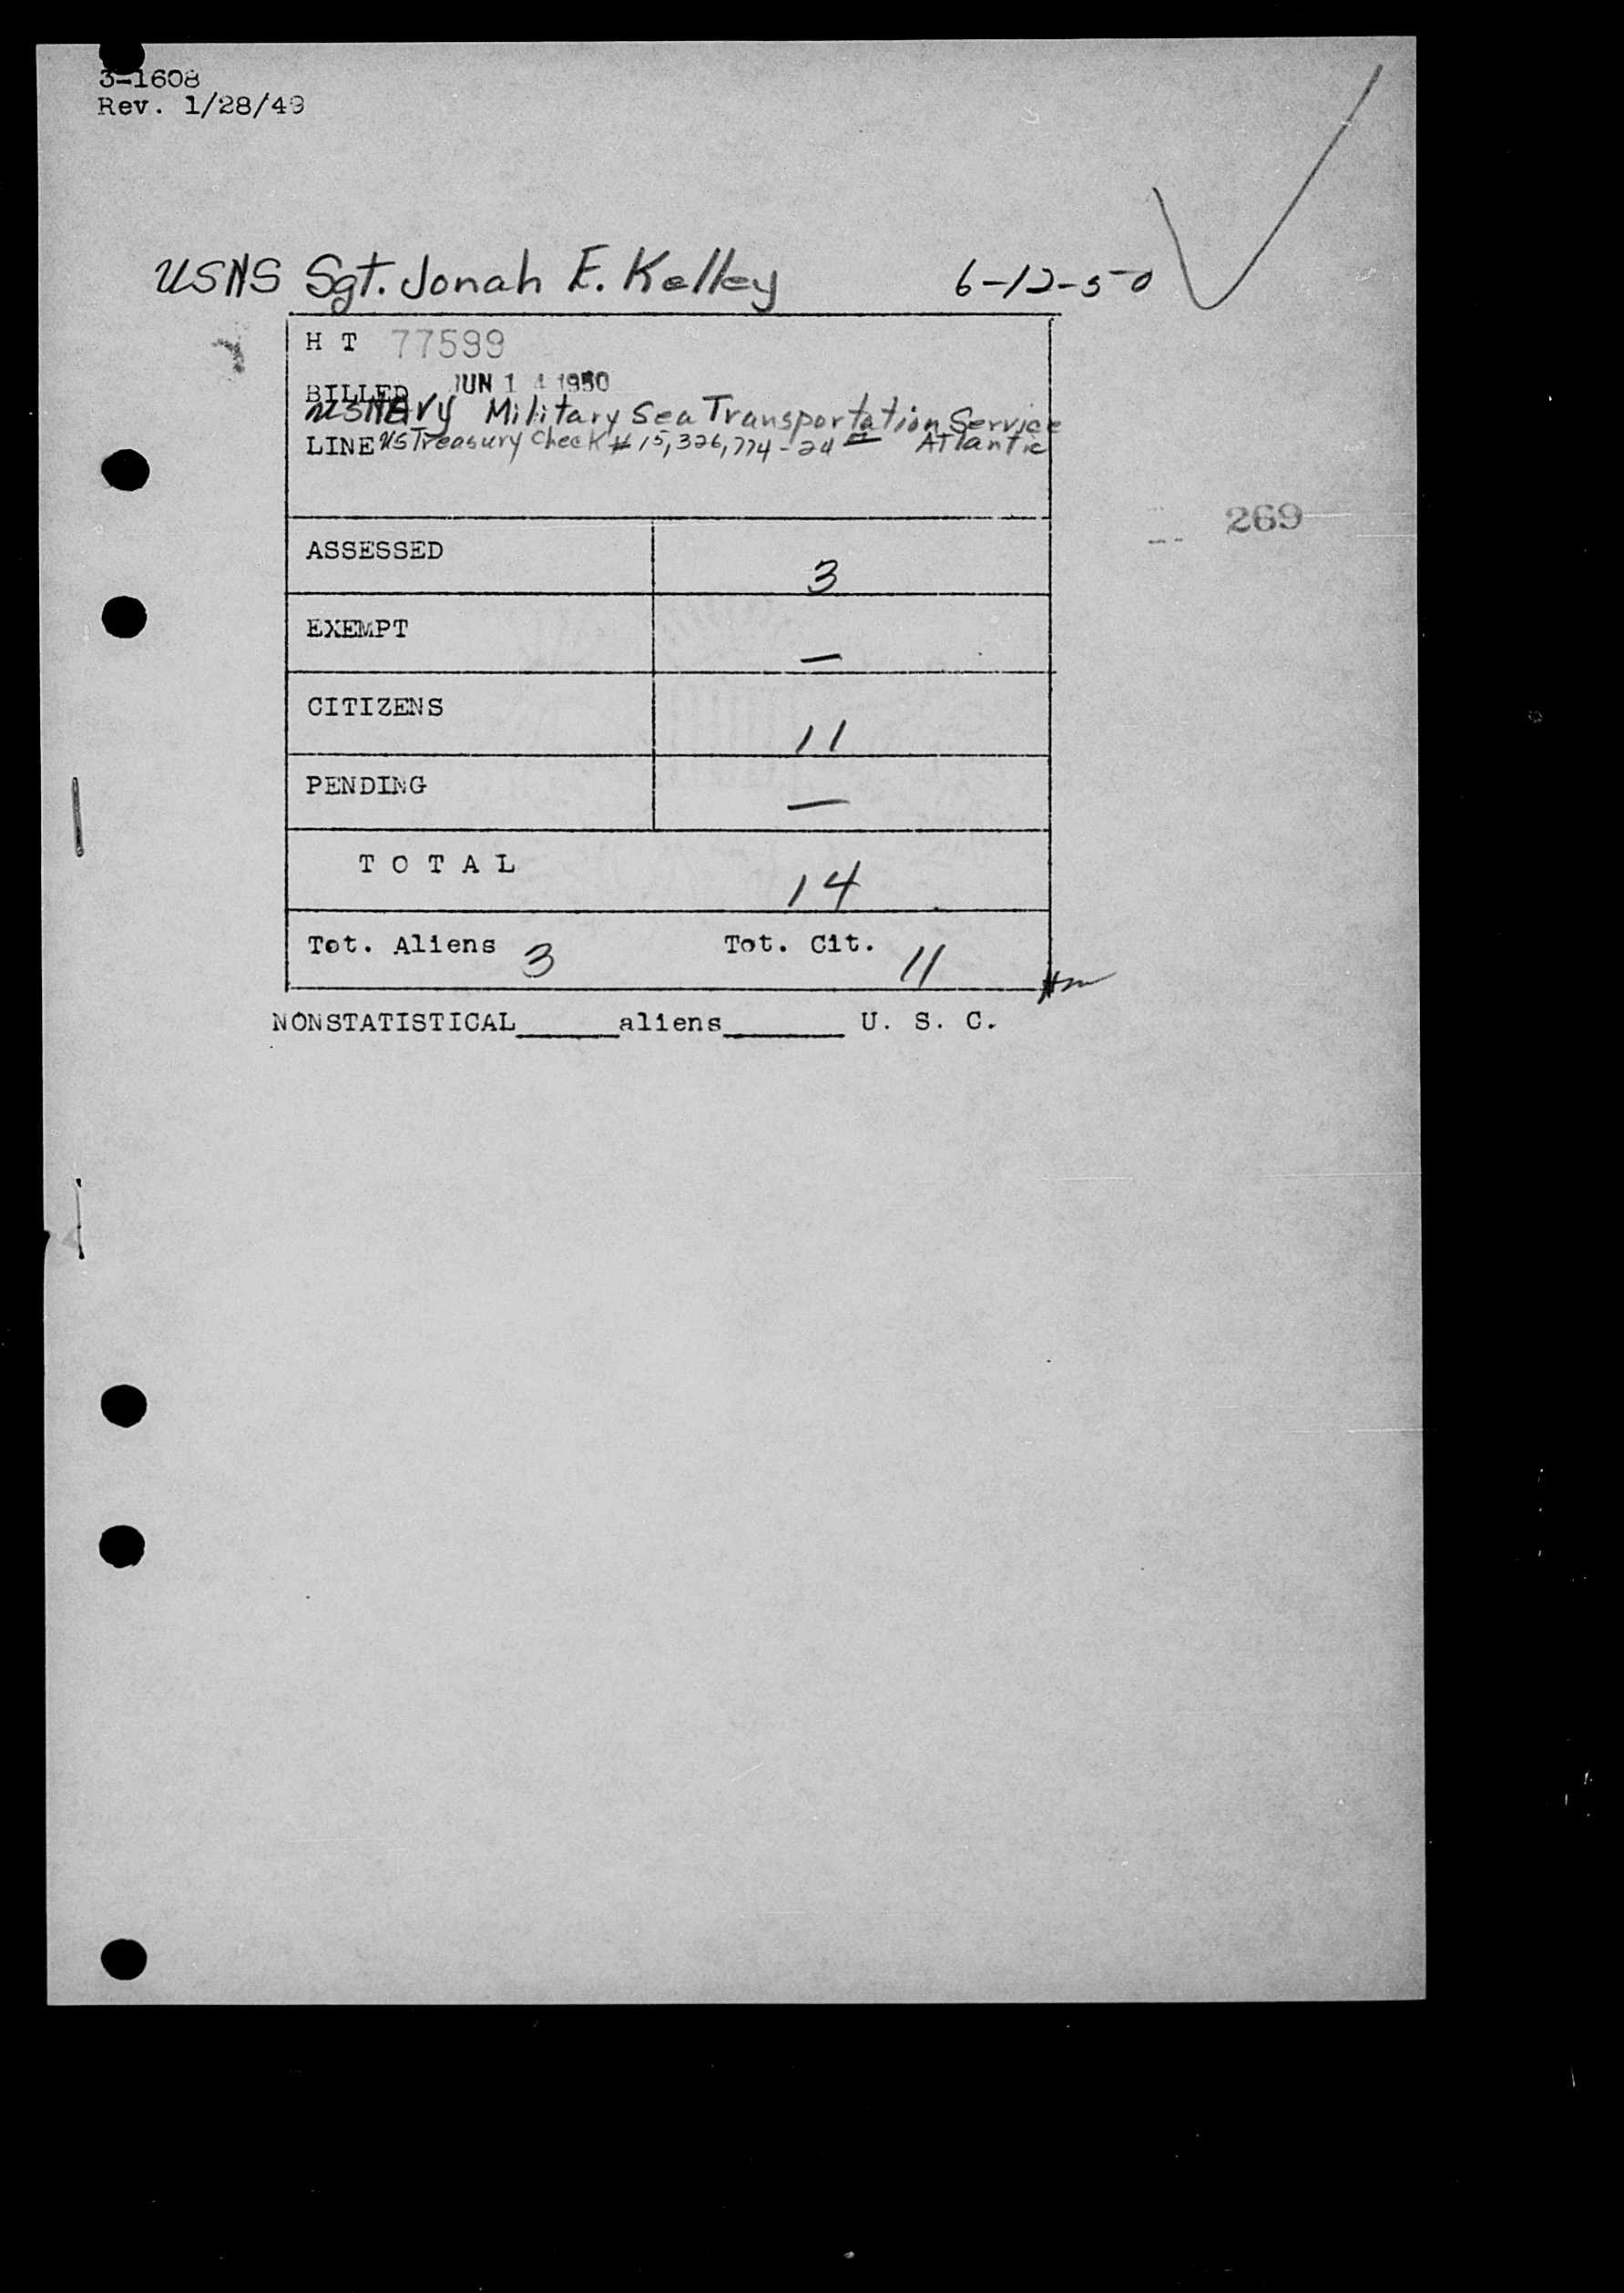 3-1608
Rev. 1/28/49
USNS Sgt. Jonah E. Kelley 6-12-50
H T 77599
BILLED JUN 14 1950
US Navy Military Sea Transportation Service
LINE US Treasury Check # 15,326,774 - 24 00 Atlantic
269
ASSESSED 3
EXEMPT —
CITIZENS 11
PENDING —
T O T A L 14
Tot. Aliens 3 Tot. Cit. 11
NONSTATISTICAL______aliens_______ U. S. C.